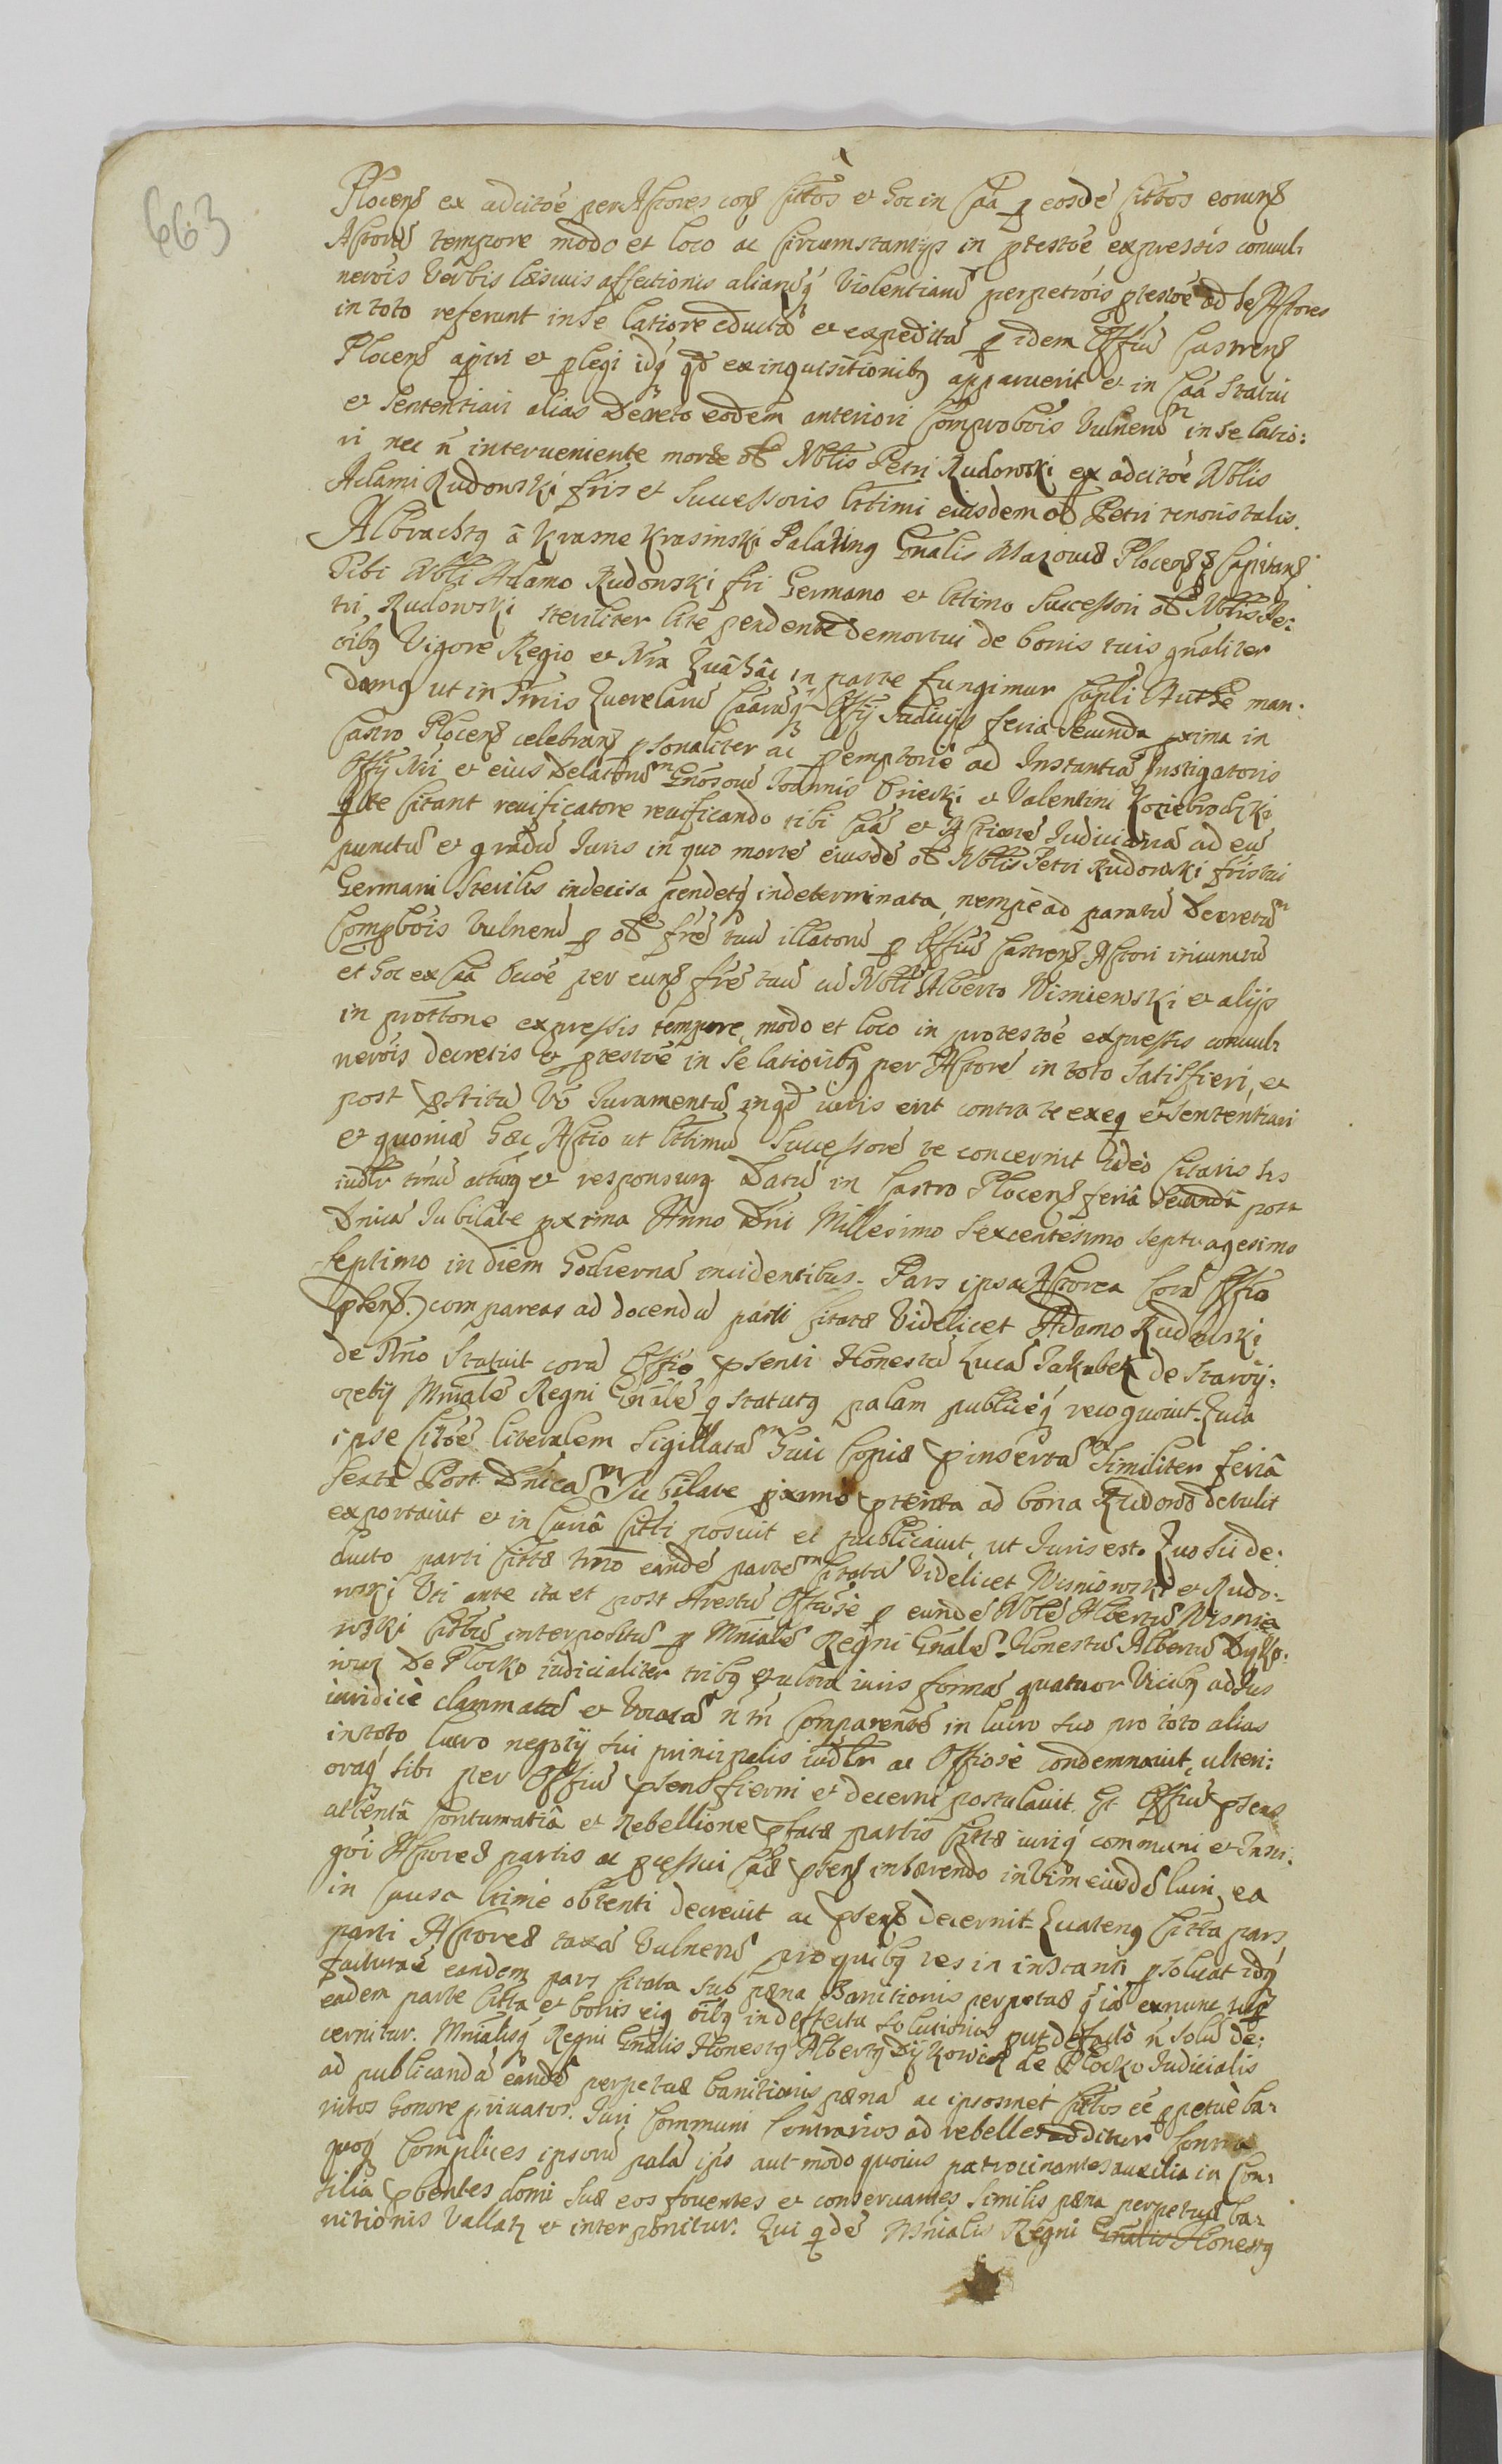 663
Plocens ex adcitõe per Actores cons Cittõs et hoc in Cãa p eosdẽ Cittos eorund
Actorũ tempore modo et loco ac Circumstantijs in ptestõe expressis convul:
nerõis Verbis læsivis affectionis aliarũq Violentiarũ perpetrõis ptestõe ad se Actores
in toto referunt in se latiore eductã et expeditã p idem Offiũ Castrens
Plocens apiri et plegi idq qd ex inquisitionibq apparuerit et in Cãa Statui
et Sententiari alias Decreto eodem anteriori Comprobõis Vulnerũ in se latio:
ri nec ñ interveniente morte ol Nblis Petri Rudowski ex adcitõe Nblis
Adami Rudowski fris et Successoris lttimi eiusdem ol Petri tenoris talis.
Albrachtq â Krasne Krasinski Palatinq Gnalis Mazoviæ Plocens Capitans
Tibi Nbli Adamo Rudowski fri Germano et lttimo Successori ol Nblis Pe:
tri Rudowski steriliter lite pendente demortui de bonis tuis gnaliter
oibq Vigore Regio et Nra Quâ hâc in parte fungimur Capli Authe man:
damq ut in Tmis Querelarũ Cãarũq Offij Iudicijs feria Secunda pxima in
Castro Plocens celebrans psonaliter ac pemptorie ad Instantiã Instigatoris
Offij Nri et eius Delatorũ Gnosorũ Ioannis Brieski et Valentini Kociebrodzki
q te Citant reuificatore reuificando tibi Cãã et Actione Iudiciariã ad eũ
punctũ et gradũ Iuris in quo morte eiusdẽ ol Nblis Petri Rudowski fris tui
Germani Sterilis indecisa pendetq indeterminata, nempe ad paratũ Decretũ
Compbõis Vulnerũ p ol frẽ tuũ illatorũ p Offiũ Castrens Actori iniunctũ
et hoc ex Cãa per eund frẽ tuũ cũ Nbli Alberto Wisniewski et alijs
in prottone expressis tempore, modo et loco in protestõe expressis convul:
nerõis decretis et ptestõe in se latioribq per Actorẽ in toto Satisfieri, et
post pstitũ Võ Iuramentũ inqd iuris erit contra te exeq et sententiari
et quoniã hæc Actio ut lttimũ Successorẽ te concernit ideò Citaris sis
iudlr tmũ attinq et responsurq Datũ in Castro Plocens feriâ Secundâ post
Dnicã Iubilate pxima Anno Dni Millesimo Sexcentesimo septuagesimo
septimo in diem hodiernã incidentibus. Pars ipsa Actorea Corã Offio
psens. compareas ad docendũ parti Citatæ Videlicet Adamo Rudowski
de Tmo Statuit corã Offio psenti Honestũ Lucã Iakubek de Staroÿ:
rzebÿ Mnialẽ Regni Gnalẽ q statutq palam publiceq recognouit. Quia
ipse Citõe literalem Sigillatã huic Copiæ pinsertã Similiter feriâ
Sexta Post Dnicã Iubilate pximo pterita ad bona Rudowo detulit
exportauit et in Curiâ Cittî posuit et publicauit, ut Iuris est. Quo sic de:
ducto parti Cittæ tmo eandẽ partẽ Citatã Videlicet Wisniowski et Rudo:
wski Uti ante ita et post Arestũ Offiosè p eundẽ Nblẽ Albertũ Wisnie
wski Cittũs interpositũ p Mnialẽ Regni Gnalẽ Honestũ Albertũ Dyko:
wicz De Plocko iudicialiter tribq et ultra iuris formã quatuor Vicibq ad Ius
iuridicè clammatã et Vocatã ñ tñ Comparentẽ in lucro suo pro toto alias
in toto lucro negotij sui principalis iudlr ac Offiosè condemnauit, ulteri:
oraq sibi per Offiũ psens fierni et decerni postulauit. Et Offiũ psens
attentâ Contumatiâ et Rebellione pfatæ partis Cittæ iuriq communi et Insti.
gõi Actoreæ partis ac pcessui Cãæ psens inhærendo in Vim eiusdẽ lucri, ea
in Causa lttimè obtenti decreuit ac psens decernit. Quatenq Citta pars
parti Actoreæ taxã Vulnerũ pro quibq res in instanti psoluat idq
facturaẽ eandem pars Citata sub pæna Banitionis perpetuæ q iã exnunc sup
eadem parte Citta et bonis eiq oibq in defectu solutionis put de facto ñ solũ de:
cernitur. Mnialisq Regni Gnalis Honestq Albertq Dÿkowicz de Plocko Iudicialis
ad publicandã eandẽ perpetuæ banitionis pænã ac ipsosmet Cittos eê ppetuè ba:
nitos honore privatos. Iuri Communi Contrarios ad rebelles additur Contra
quoq Complices ipsorũ palã ipis aut modo quouis patrocinantes auxilia in Con:
silia pbentes domi suæ eos fouentes et conseruantes Similis pæna perpetuæ ba:
nitionis Vallatz et interponitur. Qui qdẽ Mnialis Regni Gnalis Honestq